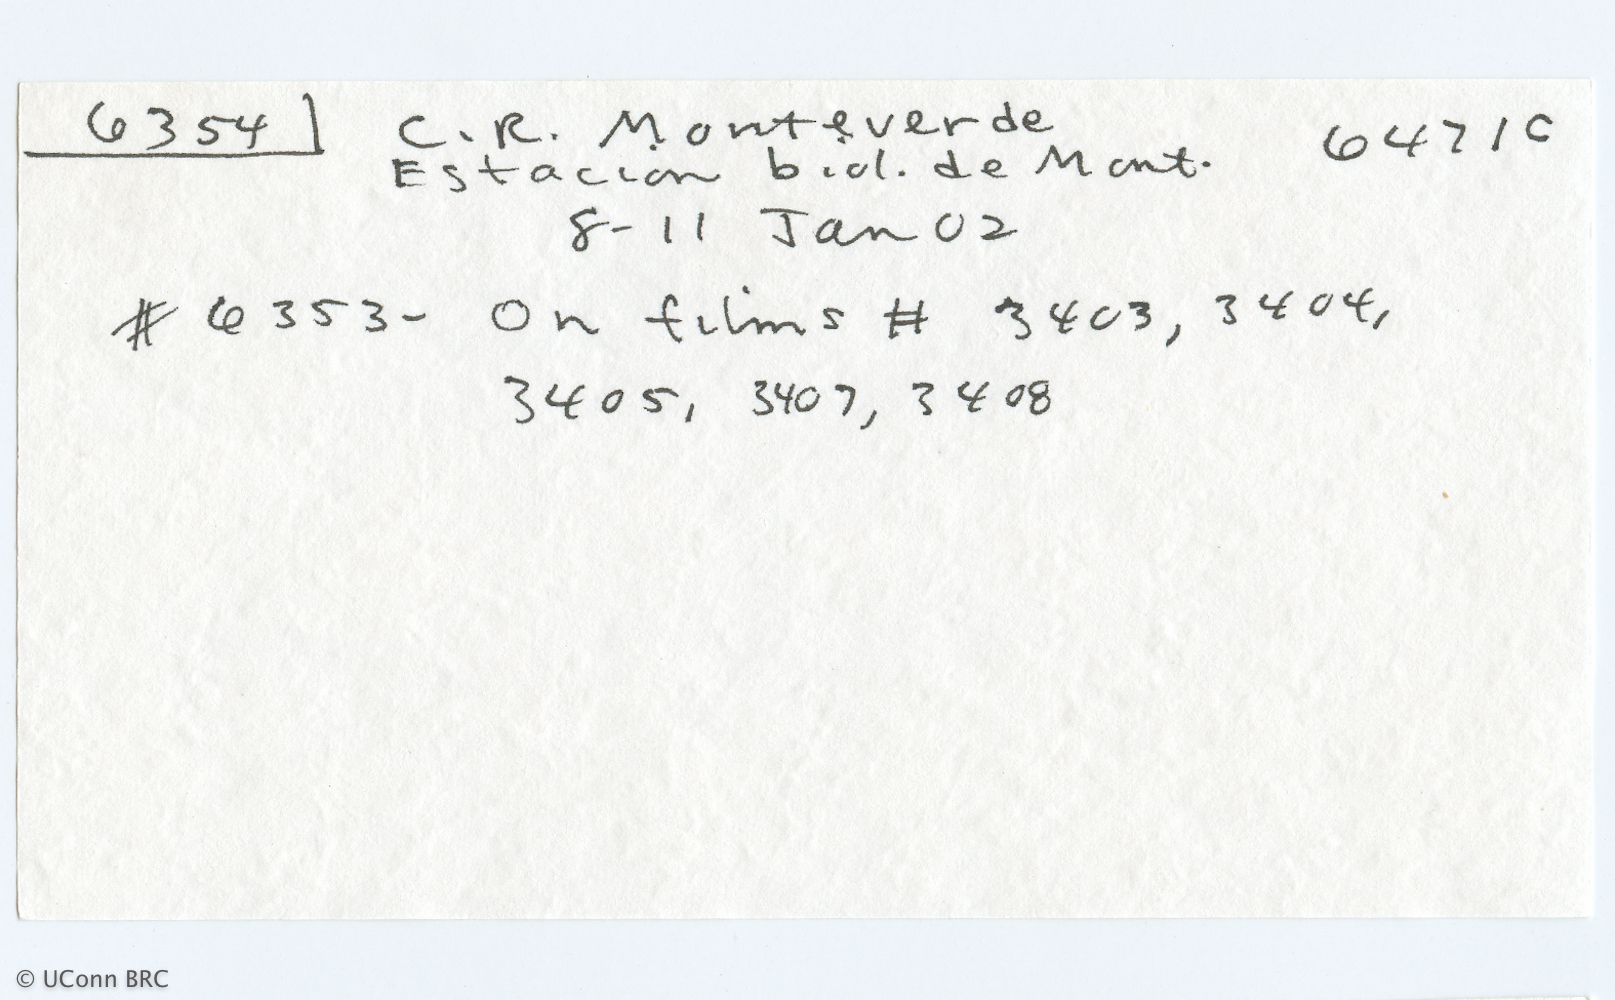 6354 C.R. Monteverde 6471C
Estacion biol. de Mont.
8-11 Jan 02
# 6353- On films # 3403, 3404,
3405, 3407, 3408
© UConn BRC